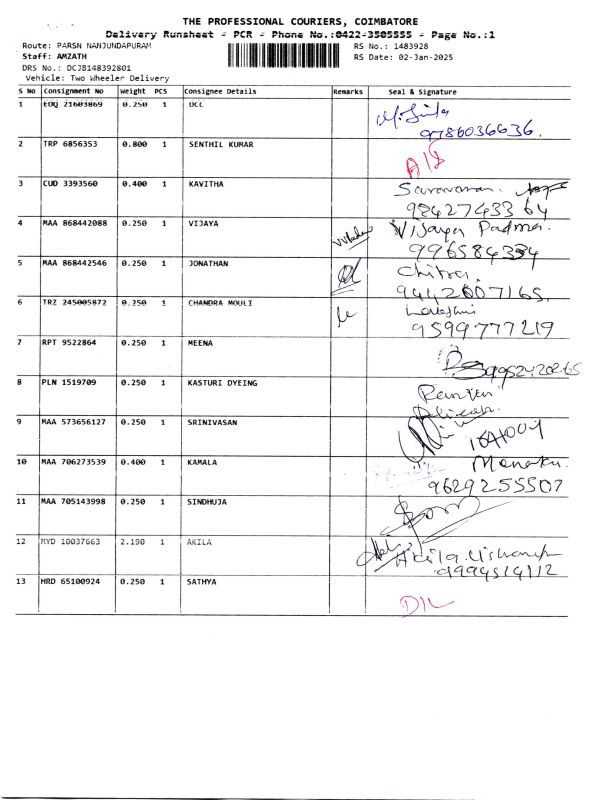 THE PROFESSIONAL COURIERS, COIMBATORE
Delivery Runsheet - PCR - Phone No.:0422-3505555 - Page No.:1
Route: PARSN NANJUNDAPURAM RS No.: 1483928
Staff: AMZATH RS Date: 02-Jan-2025
DRS No.: DCJB148392801
Vehicle: Two Wheeler Delivery
S No Consignment No Weight PCS Consignee Details Remarks Seal & Signature
1 EDQ 21603869 0.250 1 DCC
9786036636.
2 TRP 6856353 0.800 1 SENTHIL KUMAR
3 CUD 3393560 0.400 1 KAVITHA Saravanan.
9842743364
4 MAA 868442088 0.250 1 VIJAYA Vijaya Padma.
996584334
5 MAA 868442546 0.250 1 JONATHAN Chitra.
9442607165.
6 TRZ 245005872 0.250 1 CHANDRA MOULI
9599777219
7 RPT 9522864 0.250 1 MEENA
8 PLN 1519709 0.250 1 KASTURI DYEING
9 MAA 573656127 0.250 1 SRINIVASAN
10 MAA 706273539 0.400 1 KAMALA
9629255507
11 MAA 705143998 0.250 1 SINDHUJA
12 MYD 10037663 2.190 1 AKILA Akila
9994514112
13 HRD 65100924 0.250 1 SATHYA